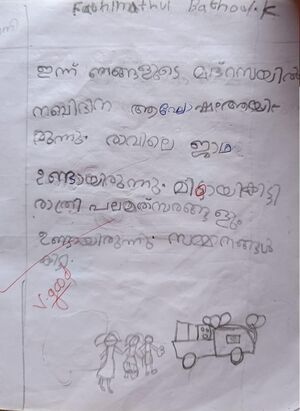 Fathimathul Bathool.K
ഇന്ന് ഞങ്ങളുടെ മദ്റസയിൽ
നബിദിന ആഘോഷമായി-
രുന്നു. രാവിലെ ജാഥ
ഉണ്ടായിരുന്നു. മിഠായികിട്ടി
രാത്രി പലമത്സരങ്ങളും
ഉണ്ടായിരുന്നു. സമ്മാനങ്ങൾ
കിട്ടി.
V.good